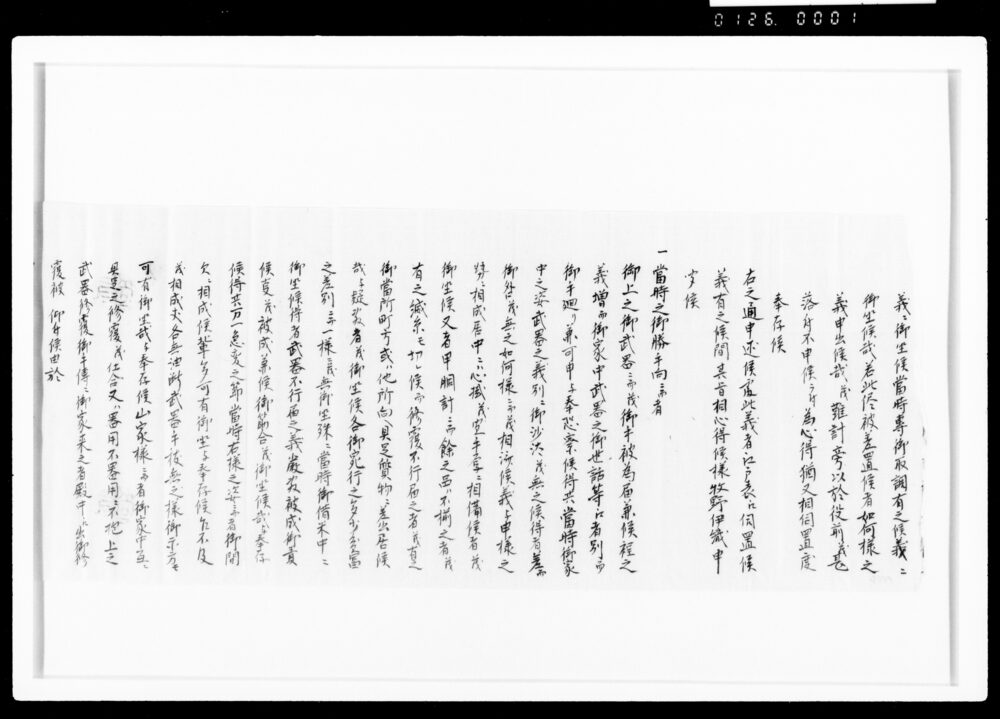 0126.0001
義ニ御坐候當時専御取調有之候義ニ
御坐候哉若此侭被差置候者如何様之
義申出候哉茂難計旁以於役前甚
落付不申候ニ付為心得猶又相伺置度
奉存候
右之通申述候處此義者江戸表江伺置候
義有之候間其旨相心得候様牧野伊織申
聞候
一當時之御勝手向ニ而者
御上之御武器ニ而茂御手被為届兼候程之
義増而御家中武器之御世話等江者別而
御手廻り兼可申与奉恐察候得共當時御家
中之姿武器之義別ニ御沙汰茂無之候得者差而
御咎茂無之如何様ニ而茂相済候義与申様之
勢ニ相成居中ニハ心掛茂宜手厚ニ相備候者茂
有之候
御坐候又者甲胴計ニ而餘之品ハ不揃之者茂
有之縅糸も切レ候而修覆不行届之者茂有之
御當所町方或ハ他所向江具足質物ニ差出居候
哉与疑敷者茂御坐候各御宛行之多少貧富
之差別ニ而一様ニ茂無御坐殊ニ當時御借米中ニ
御坐候得者武器不行届之義嚴敷被成御責
候義茂被成兼候御都合茂御坐候哉与奉存
候得共万一急変之節當時右様之姿ニ而者御間
欠ニ相成候輩多可有御坐与奉存候乍不及
茂相成丈各無油断武器手技無之様御示方も
可有御坐哉与奉存候山家様ニ而者御家中五
具足之修覆茂仕合又ハ器用不器用ニ不抱上之
武器修覆御手傳ニ御家来之者殿中江出御修
覆被 仰付候由於